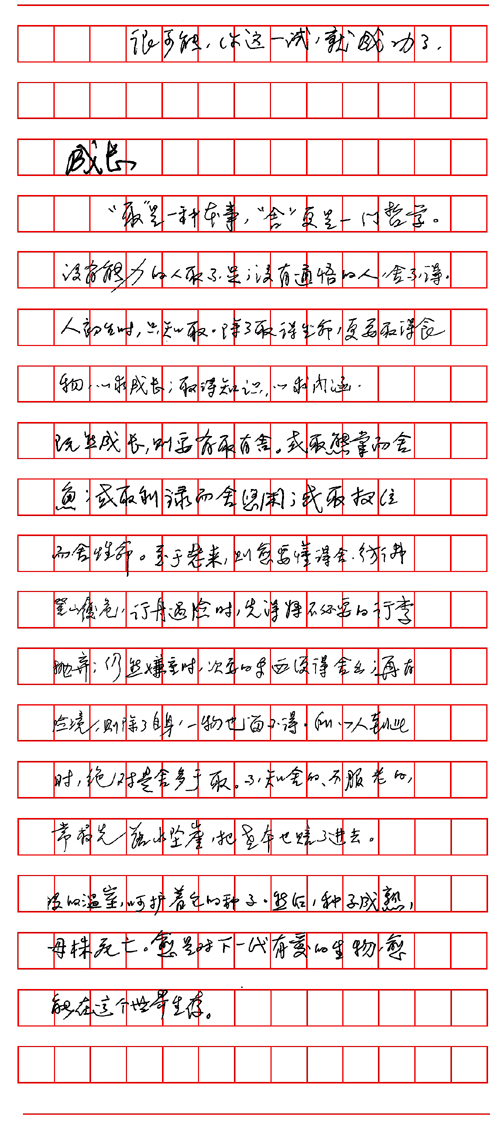 很可能，你这一试，就成功了。
成长
“取”是一种本事，“舍”更是一门哲学。
没有能力的人取不足；没有通悟的人，舍不得。
人初生时，只知取。除了取得生命，更要取得食
物，以求成长；取得知识，以求内涵。
既然成长，则要有取有舍。或取熊掌而舍
鱼；或取利禄而舍悠闲；或取权位
而舍性命。至于老来，则愈要懂得舍，仿佛
登山履危，行舟遇险时，先得将不必要的行李
抛弃；仍然嫌重时，次要的东西便得舍出；再有
险境，则除了自身，一物也留不得。所以人到此
时，绝对是舍多于取。不知舍的、不服老的，
常首先落水坠崖，把老本也赔了进去。
的温室，呵护着它的种子。然后，种子成熟，
母株死亡。愈是对下一代有爱的生物，愈
能在这个世界生存。